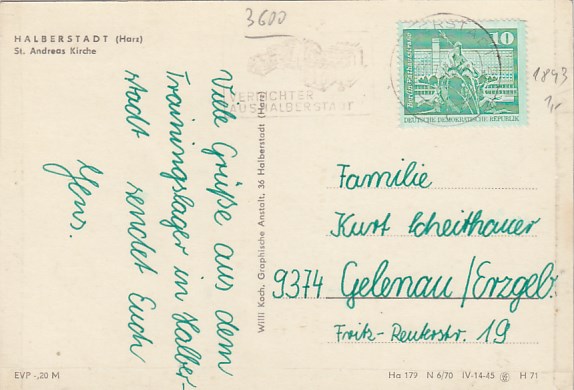 3600
HALBERSTADT (Harz)
St. Andreas Kirche
VERNICHTER
AUS HALBERSTADT
10
DEUTSCHE DEMOKRATISCHE REPUBLIK
1843
1,-
Viele Grüße aus dem
Trainingslager in Halber-
stadt sendet Euch
Jens.
Willi Koch, Graphische Anstalt, 36 Halberstadt (Harz)
Familie
Kurt Scheithauer
9374 Gelenau/Erzgeb.
Fritz-Reuterstr. 19
EVP -,20 M
Ha 179 N 6/70 IV-14-45 H 71